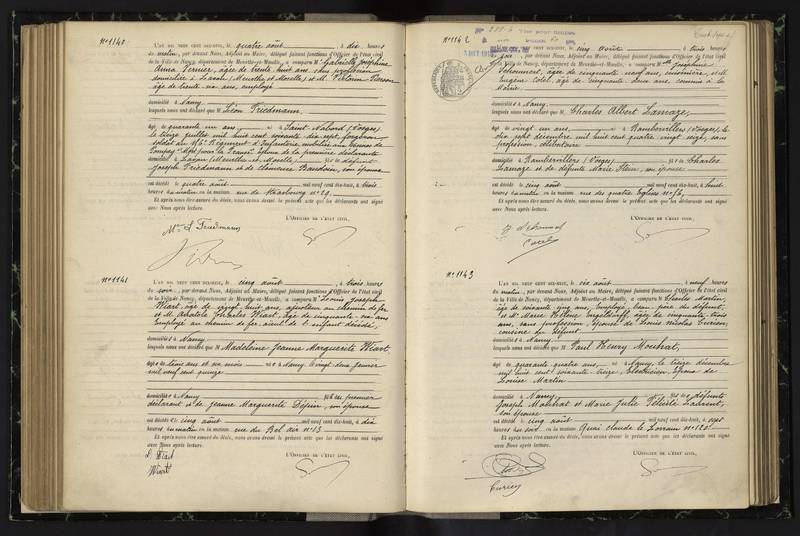 N° 1140
L'an mil neuf cent dix-huit, le quatre août, à dix heures
du matin, par devant Nous, Adjoint au Maire, délégué faisant fonctions d'Officier de l'état civil
de la Ville de Nancy, département de Meurthe-et-Moselle, a comparu M Gabrielle Joséphine
âgée de trente huit ans, sans profession
domiciliée à (Meurthe et Moselle) et M.
âgé de trente ans, employé
domicilié à Nancy
lesquels nous ont déclaré que M Léon Friedmann,
âgé de quarante un ans, né à Saint Nabord (Vosges)
le treize juillet mil huit cent soixante dix sept, forgeron
soldat au Régiment d'Infanterie, de la première déclarante
domicilié à (Meurthe et Moselle), fils de défunt
Joseph Friedmann et de Clémence Baudoin, son épouse
est décédé le quatre août mil neuf cent dix-huit, à trois
heures du matin en la maison rue de Strasbourg n° 29.
Et après nous être assuré du décès, nous avons dressé le présent acte que les déclarants ont signé
avec Nous après lecture.
L'Officier de l'état civil,
Mme L Friedmann
N° 1141
L'an mil neuf cent dix-huit, le cinq août, à trois heures
du soir, par devant Nous, Adjoint au Maire, délégué faisant fonctions d'Officier de l'état civil
de la Ville de Nancy, département de Meurthe-et-Moselle, a comparu M Louis Joseph
Wiart, âgé de vingt huit ans, ajusteur au chemin de fer
et M. Anatole Wiart, âgé de cinquante six ans
employé au chemin de fer, aïeul de l'enfant décédé,
domiciliés à Nancy
lesquels nous ont déclaré que M Madeleine Jeanne Marguerite Wiart,
âgée de trois ans et six mois née à Nancy vingt deux janvier
mil neuf cent quinze
domiciliée à Nancy, fille du premier
déclarant et de Jeanne Marguerite son épouse
est décédée le cinq août mil neuf cent dix-huit, à dix
heures du matin en la maison rue du Bel air n° 13
Et après nous être assuré du décès, nous avons dressé le présent acte que les déclarants ont signé
avec Nous après lecture.
L'Officier de l'état civil,
L. Wiart
Wiart
N° 1142
Visé pour timbre
L'an mil neuf cent dix-huit, le cinq août, à trois heures
du soir, par devant Nous, Adjoint au Maire, délégué faisant fonctions d'Officier de l'état civil
de la Ville de Nancy, département de Meurthe-et-Moselle, a comparu Mme Joséphine
âgée de cinquante neuf ans, cuisinière, et M.
Eugène âgé de cinquante deux ans, commis à la
Mairie
domiciliés à Nancy
lesquels nous ont déclaré que M Charles Albert Lamaze,
âgé de vingt un ans, né à Rambervillers (Vosges), le
dix sept décembre mil huit cent quatre vingt seize, sans
profession, célibataire
domicilié à Rambervillers (Vosges) fils de Charles
Lamaze et de défunte Marie Stein, son épouse
est décédé le cinq août mil neuf cent dix-huit, à huit
heures du matin en la maison rue des quatre Eglises n°
Et après nous être assuré du décès, nous avons dressé le présent acte que les déclarants ont signé
avec Nous après lecture.
L'Officier de l'état civil,
N° 1143
L'an mil neuf cent dix-huit, le six août, à neuf heures
du matin, par devant Nous, Adjoint au Maire, délégué faisant fonctions d'Officier de l'état civil
de la Ville de Nancy, département de Meurthe-et-Moselle, a comparu M Charles Martin,
âgé de soixante cinq ans, employé, beau-père du défunt,
et Mme Marie Hélène âgée de cinquante trois
ans, sans profession, épouse de Louis Nicolas
cousine du défunt
domiciliés à Nancy
lesquels nous ont déclaré que M Paul Henry
âgé de quarante quatre ans, né à Nancy, le treize décembre
mil huit cent soixante treize, Electricien, Epoux de
Louise Martin
domicilié à Nancy, fils de défunts
Joseph et Marie Julie Félicité
son épouse
est décédé le cinq août mil neuf cent dix-huit, à onze
heures du soir en la maison Quai Claude le Lorrain n° 120
Et après nous être assuré du décès, nous avons dressé le présent acte que les déclarants ont signé
avec Nous après lecture.
L'Officier de l'état civil,